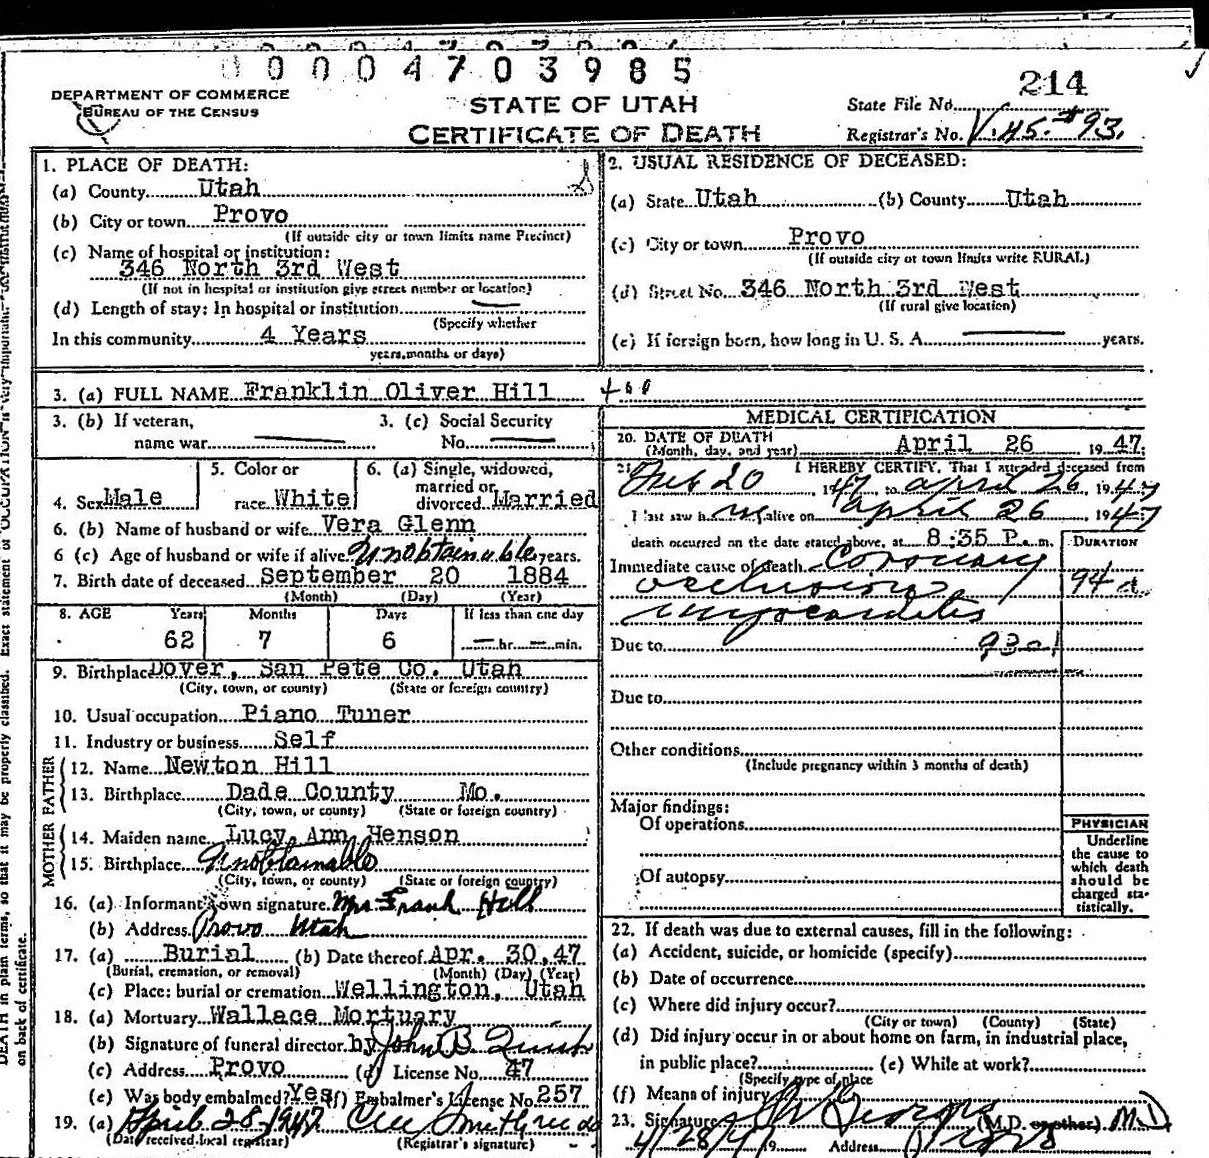 0 0 0 4 7 0 3 9 8 5
DEPARTMENT OF COMMERCE
BUREAU OF THE CENSUS
STATE OF UTAH
CERTIFICATE OF DEATH
214
State File No.
Registrar's No. V.HS. #93.
1. PLACE OF DEATH:
(a) County Utah
(b) City or town Provo
(If outside city or town limits name Precinct)
(c) Name of hospital or institution:
346 North 3rd West
(If not in hospital or institution give street number or location)
(d) Length of stay: In hospital or institution
(Specify whether
In this community 4 Years
years, months or days)
2. USUAL RESIDENCE OF DECEASED:
(a) State Utah (b) County Utah
(c) City or town Provo
(If outside city or town limits write RURAL)
(d) Street No. 346 North 3rd West
(If rural give location)
(e) If foreign born, how long in U. S. A. years.
3. (a) FULL NAME Franklin Oliver Hill
3. (b) If veteran,
name war
3. (c) Social Security
No.
4. Sex Male
5. Color or
race White
6. (a) Single, widowed,
married or
divorced Married
6. (b) Name of husband or wife Vera Glenn
6 (c) Age of husband or wife if alive Unobtainable years.
7. Birth date of deceased September 20 1884
(Month) (Day) (Year)
8. AGE Years Months Days If less than one day
62 7 6 hr. min.
9. Birthplace Dover, San Pete Co. Utah
(City, town, or county) (State or foreign country)
10. Usual occupation Piano Tuner
11. Industry or business Self
FATHER
12. Name Newton Hill
13. Birthplace Dade County Mo.
(City, town, or county) (State or foreign country)
MOTHER
14. Maiden name Lucy Ann Henson
15. Birthplace Unobtainable
(City, town, or county) (State or foreign country)
16. (a) Informant's own signature Mrs Frank Hill
(b) Address Provo Utah
17. (a) Burial (b) Date thereof Apr. 30, 47
(Burial, cremation, or removal) (Month) (Day) (Year)
(c) Place: burial or cremation Wellington, Utah
18. (a) Mortuary Wallace Mortuary
(b) Signature of funeral director by John B.
(c) Address Provo (d) License No. 47
(e) Was body embalmed? Yes (f) Embalmer's License No. 257
19. (a) April 28 1947
(Date received local registrar) (Registrar's signature)
MEDICAL CERTIFICATION
20. DATE OF DEATH
(Month, day, and year) April 26 1947
21. I HEREBY CERTIFY, That I attended deceased from
Feb 20 1947, to April 26, 1947
I last saw him alive on April 26 1947
death occurred on the date stated above, at 8:35 P. m.
DURATION
Immediate cause of death Coronary
occlusion 94a
myocarditis
Due to 93d
Due to
Other conditions
(Include pregnancy within 3 months of death)
Major findings:
Of operations
Of autopsy
PHYSICIAN
Underline
the cause to
which death
should be
charged sta-
tistically.
22. If death was due to external causes, fill in the following:
(a) Accident, suicide, or homicide (specify)
(b) Date of occurrence
(c) Where did injury occur?
(City or town) (County) (State)
(d) Did injury occur in or about home on farm, in industrial place,
in public place? (e) While at work?
(Specify type of place
(f) Means of injury
23. Signature (M.D. or other) M.D.
4/28/47 19 Address Provo
on back of certificate.
DEATH in plain terms, so that it may be properly classified. Exact statement of OCCUPATION is very important.